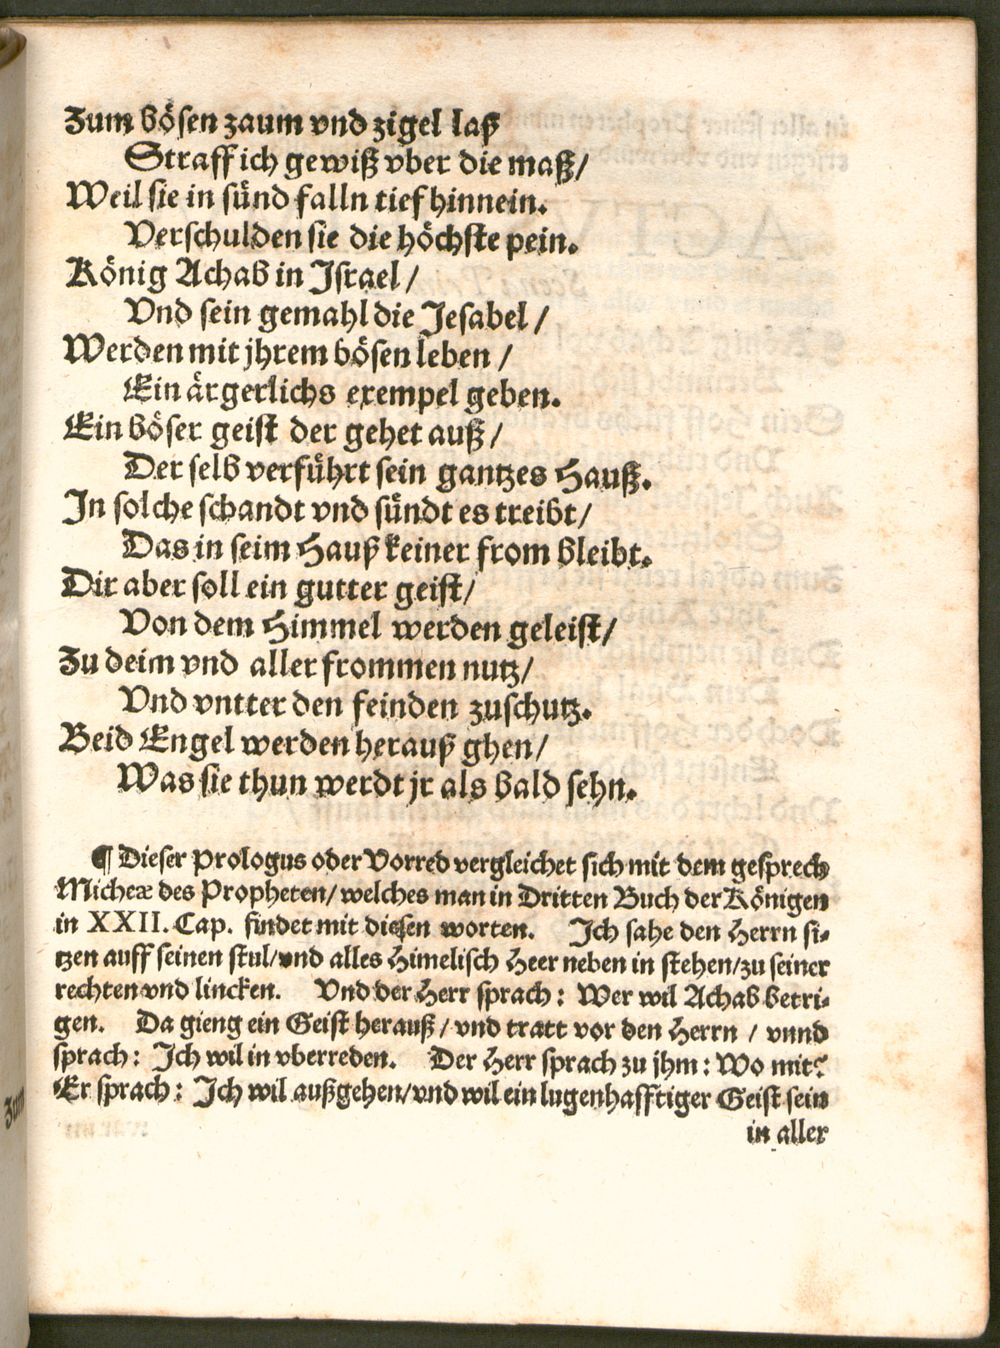 Zum bösen zaum vnd zigel laß
Straff ich gewiß vber die maß/
Weil sie in sünd falln tief hinnein.
Verschulden sie die höchste pein.
König Achab in Israel/
Vnd sein gemahl die Jesabel/
Werden mit jhrem bösen leben/
Ein ärgerlichs exempel geben.
Ein böser geist der gehet auß/
Der selb verführt sein gantzes Hauß.
In solche schandt vnd sündt es treibt/
Das in seim Hauß keiner from bleibt.
Dir aber soll ein gutter geist/
Von dem Himmel werden geleist/
Zu deim vnd aller frommen nutz/
Vnd vntter den feinden zuschutz.
Beid Engel werden herauß ghen/
Was sie thun werdt jr als bald sehn.
¶ Dieser Prologus oder Vorred vergleichet sich mit dem gesprech
Micheæ des Propheten/ welches man in Dritten Buch der Königen
in XXII. Cap. findet mit diesen worten. Ich sahe den Herrn si-
tzen auff seinen stul/vnd alles Himelisch Heer neben in stehen/zu seiner
rechten vnd lincken. Vnd der Herr sprach: Wer wil Achab betri-
gen. Da gieng ein Geist herauß/ vnd tratt vor den Herrn/ vnnd
sprach: Ich wil in vberreden. Der Herr sprach zu jhm: Wo mit?
Er sprach: Ich wil außgehen/vnd wil ein lugenhafftiger Geist sein
in aller